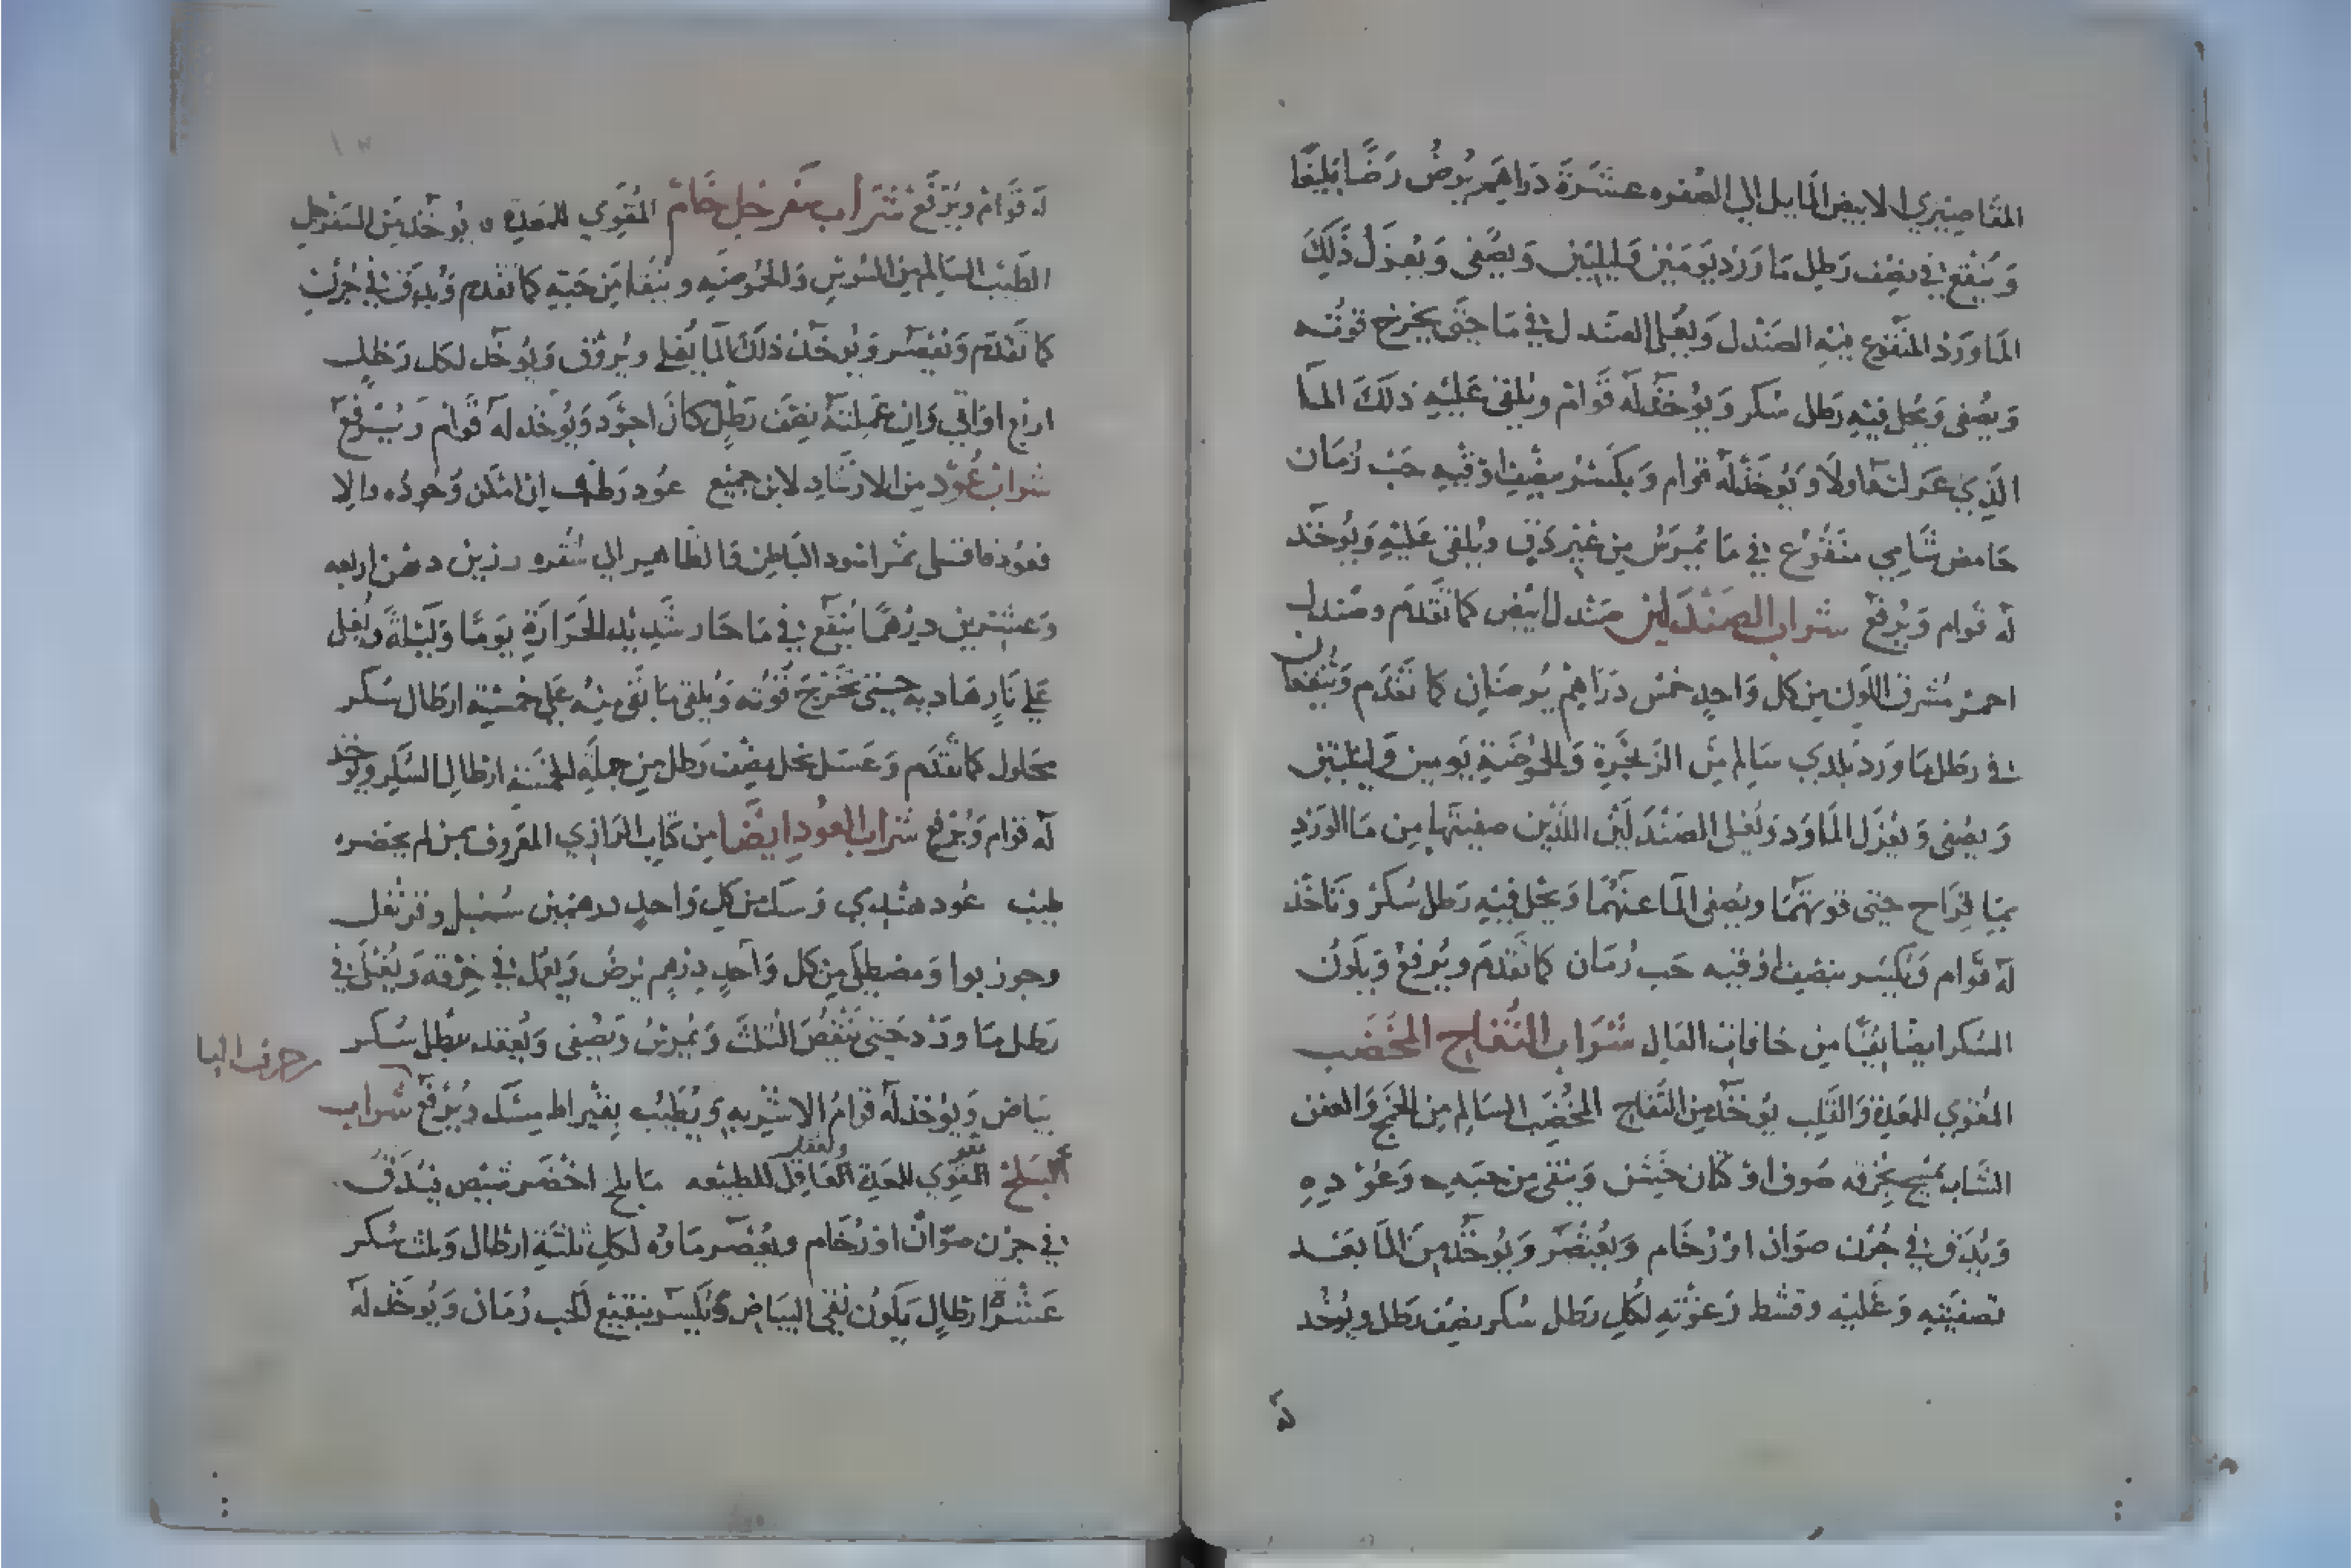 المقاصيري الابيض المايل الي الصفره عشرة دراهم يرض رضا بليغا
وينقع في نصف رطل ماورد يومين وليلتين ويصفى ويعزل ذلك
الماورد المنقوع فيه الصندل ويغلى الصندل في ما حتى يخرج قوته
ويصفى ويحل فيه رطل سكر ويوخذ له قوام ويلقى عليه ذلك الما
الذي عزلته اولا ويوخذ له قوام ويكسر بنصف اوقيه حب رمان
حامض شامي منقوع في ما يمرس من غير دق ويلقى عليه ويوخذ
له قوام ويرفع شراب الصندلين صندل ابيض كما تقدم وصندل
احمر مشرق اللون من كل واحد خمس دراهم يرضان كما تقدم وينقعان
في رطل ماورد بلدي سالم من الزنجرة والحموضة يومين وليلتين
ويصفى ويعزل الماورد ويغلى الصندلين اللذين صفيتها من ما الورد
بما قراح حتى قوتهما ويصفى الما عنهما ويحل فيه رطل سكر وتاخذ
له قوام وتكسر بنصف اوقيه حب رمان كما تقدم ويرفع ويكون
السكر ايضا نقيا من خافات القال شراب التفاح المخضب
المقوي للمعدة والقلب يوخذ من التفاح المخضب السالم من الفج والعفن
الشاب يمسح بخرقه صوف او كتان خشن وينقى من حبه وعوده
ويدق في جرن صوان او رخام ويعتصر ويوخذ من الما بعد
تصفيته وغليه وقشط رغوته لكل رطل سكر نصف رطل ويوخذ
له
له قوام ويرفع شراب سفرجل خام المقوي للمعدة يوخذ من السفرجل
الطيب السالم من السوس والحموضه وينقا من حبه كما تقدم ويدق في جرن
كما تقدم ويعصر ويوخذ ذلك الما يغلى ويروق ويوخذ لكل رطل
اربع اواقي وان عملته نصف رطل كان اجود ويوخذ له قوام ويرفع
شراب عود من الارشاد لابن جميع عود رطب ان امكن وجوده والا
فعود فاقلى تمر اسود الباطن فالظاهر الي شقره رزين دهن اربعه
وعشرين درهما ينقع في ما حار شديد الحرارة يوما وليلة ويغلى
على نار هاديه حتى تخرج قوته ويلقى ما بقي منه على خمسة ارطال سكر
محلول كما تقدم وعسل نحل نصف رطل من جملة الخمسة ارطال السكر ويوخذ
له قوام ويرفع شراب العود ايضا من كتاب الرازي المعروف بمن لم يحضره
طبيب عود هندي وسك من كل واحد درهمين سنبل وقرنفل
وجوز بوا ومصطكى من كل واحد درهم يرض ويعمل في خرقه ويغلى في
رطل ماورد حتى ينقص الثلث ويمرس ويصفى ويعقد برطل سكر
حرف البا
بياض ويوخذ له قوام الاشربه ويطيب بقيراط مسك ويرفع شراب
البلح المقوي للمعدة العاقل للطبيعه ما بلح اخضر قبيض فيدق
في جرن صوان او رخام ويعصر ماوه لكل ثلثة ارطال وثلث سكر
عشرة ارطال يكون نقي البياض وتكسر بنقيع الحب رمان ويوخذ له